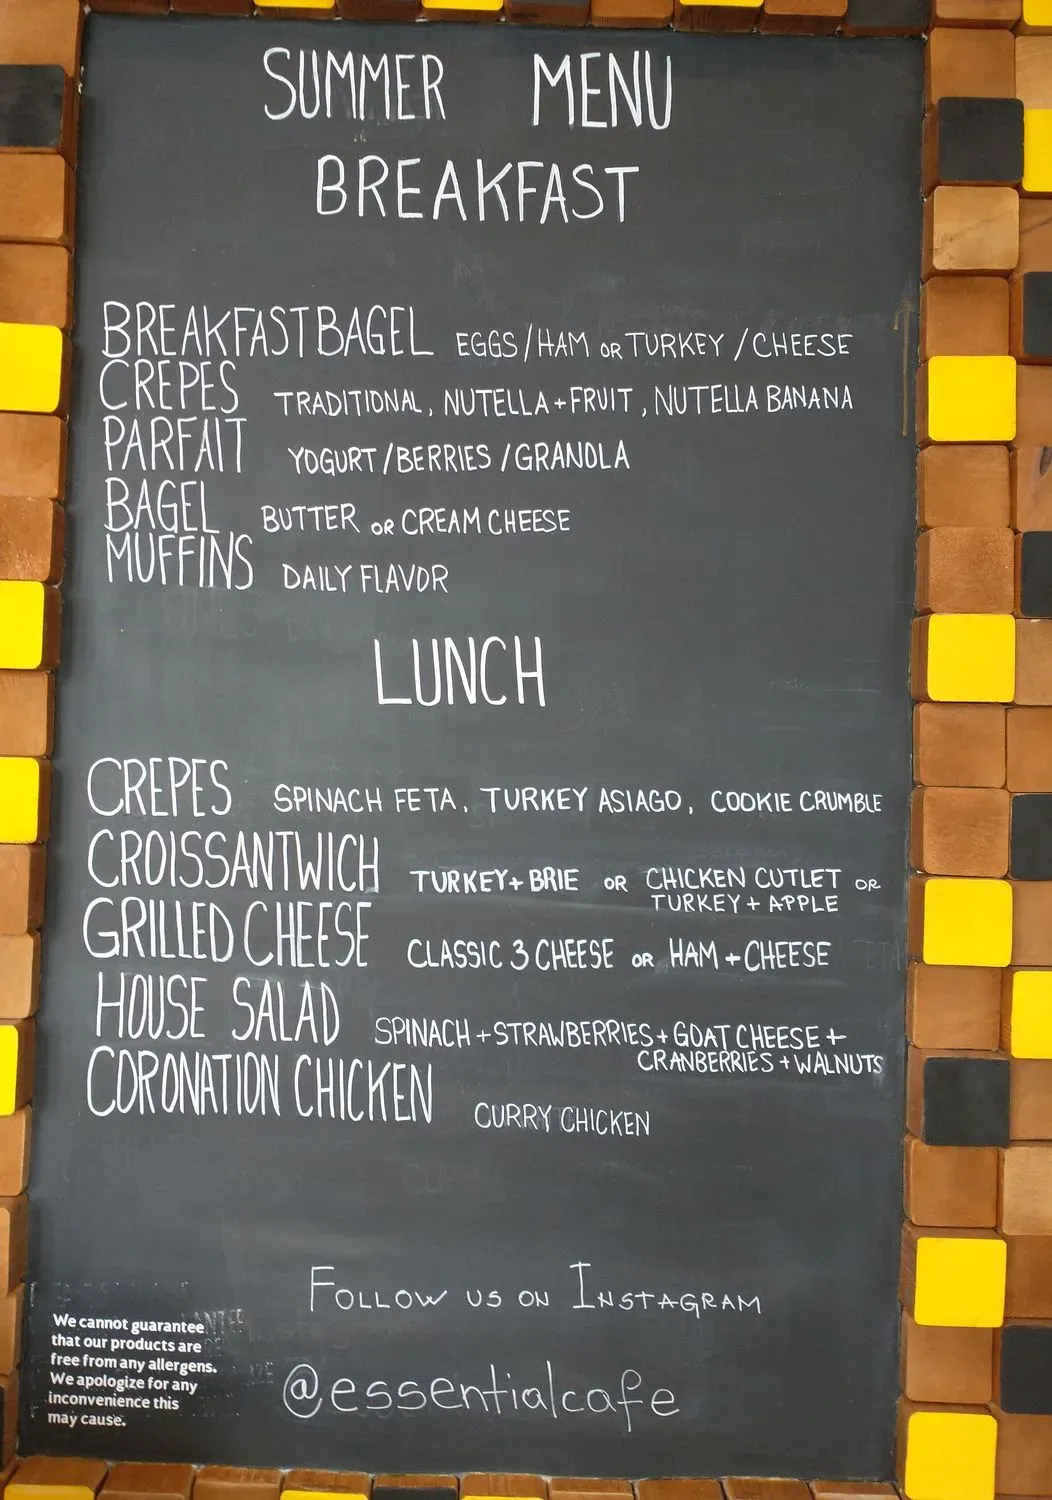 SUMMER MENU
BREAKFAST
BREAKFAST BAGEL EGGS/HAM OR TURKEY/CHEESE
CREPES TRADITIONAL, NUTELLA+FRUIT, NUTELLA BANANA
PARFAIT YOGURT/BERRIES/GRANOLA
BAGEL BUTTER OR CREAM CHEESE
MUFFINS DAILY FLAVOR
LUNCH
CREPES SPINACH FETA, TURKEY ASIAGO, COOKIE CRUMBLE
CROISSANTWICH TURKEY+BRIE OR CHICKEN CUTLET OR
TURKEY+APPLE
GRILLED CHEESE CLASSIC 3 CHEESE OR HAM+CHEESE
HOUSE SALAD SPINACH+STRAWBERRIES+GOAT CHEESE+
CRANBERRIES+WALNUTS
CORONATION CHICKEN CURRY CHICKEN
FOLLOW US ON INSTAGRAM
@essentialcafe
We cannot guarantee
that our products are
free from any allergens.
We apologize for any
inconvenience this
may cause.